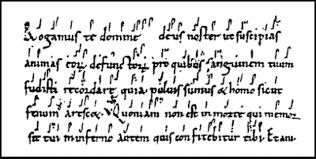 Rogamus te domine deus noster ut suscipias
animas eorum defunctorum pro quibus sanguinem tuum
fudisti recordare quia pulvis sumus & homo sicut
fenum Quoniam non est in morte qui memor
sit tui in inferno autem quis confitebitur tibi Et ani